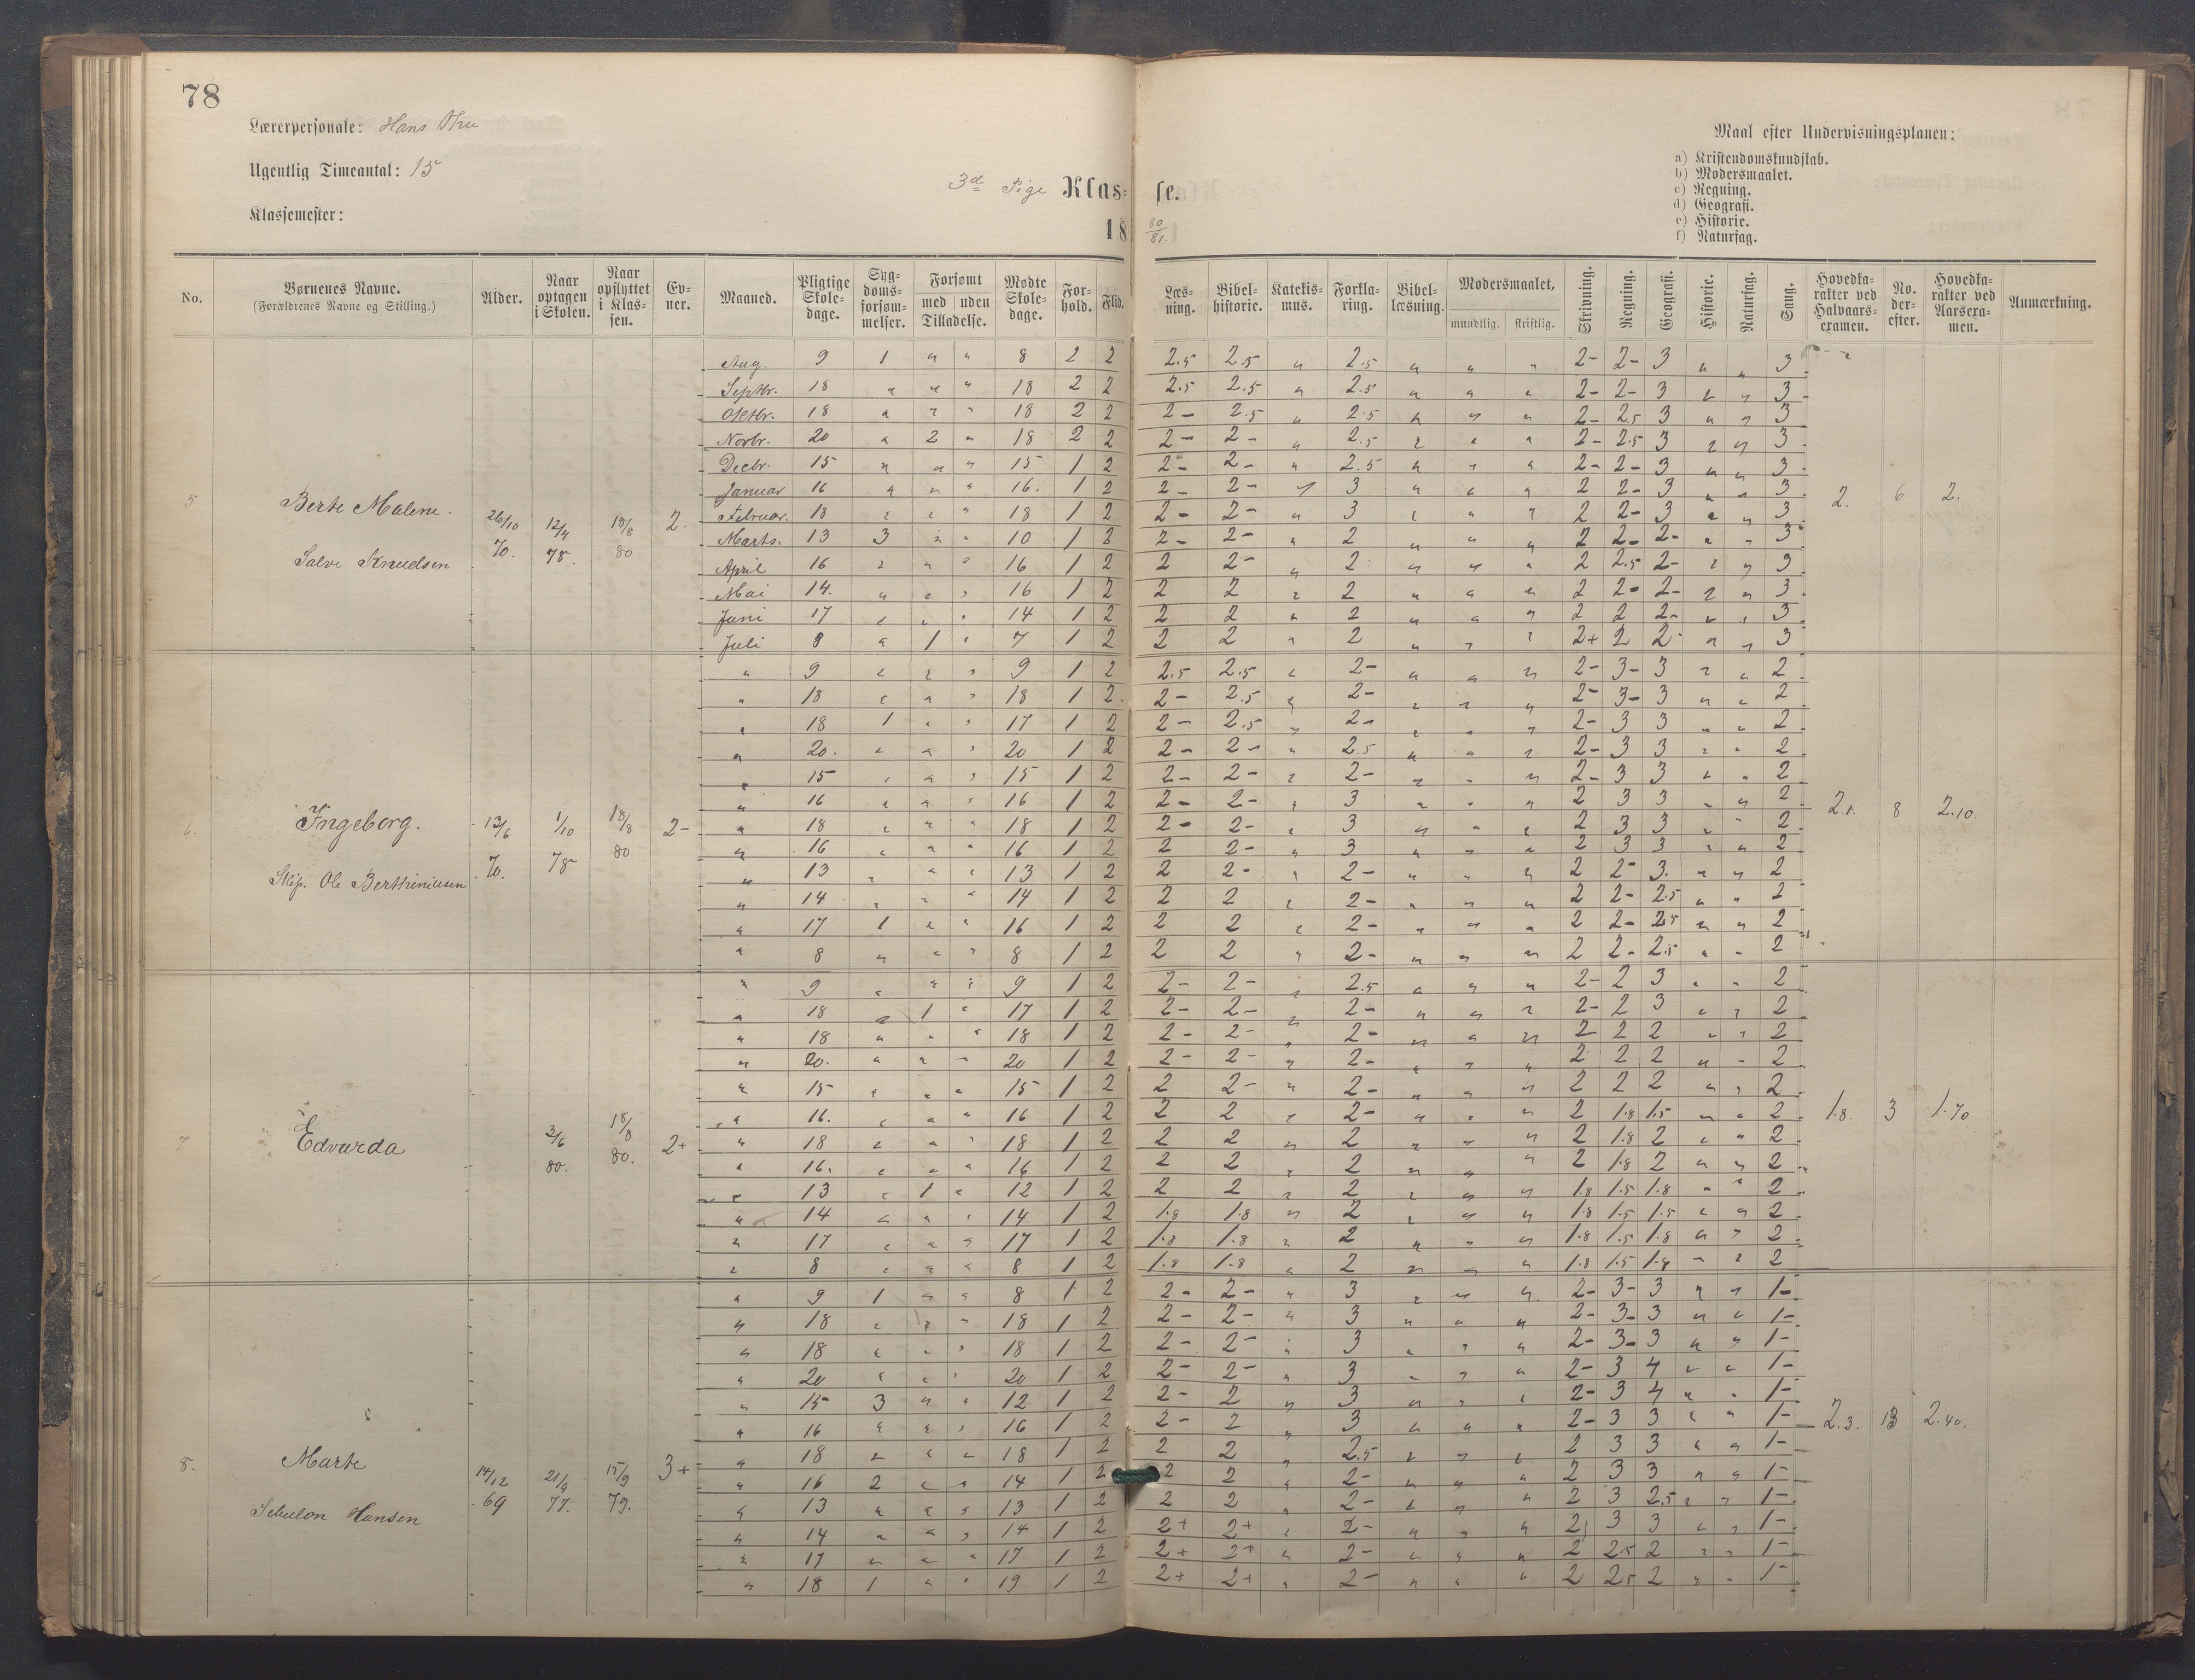 78
Lærerpersonale: Hans
Ugentlig Timeantal: 15
Klassemester:
3de Pige Klasse.
18 80/81.
Maal efter Undervisningsplanen:
a) Kristendomskundskab.
b) Modersmaalet.
c) Regning.
d) Geografi.
e) Historie.
f) Naturfag.
No. Børnenes Navne. (Forældrenes Navne og Stilling.) Alder. Naar optagen i Skolen. Naar opflyttet i Klassen. Evner. Maaned. Pligtige Skoledage. Sygdomsforsømmelser. Forsømt med uden Tilladelse. Mødte Skoledage. Forhold. Flid. Læsning. Bibelhistorie. Katekismus. Forklaring. Bibellæsning. Modersmaalet, mundtlig. skriftlig. Skrivning. Regning. Geografi. Historie. Naturfag. Sang. Hovedkarakter ved Halvaarsexamen. No. derefter. Hovedkarakter ved Aarsexamen. Anmærkning.
Aug. 9 1 " " 8 2 2 2.5 2.5 " 2.5 " " " 2- 2- 3 " " 3
Septbr. 18 " " " 18 2 2 2.5 2.5 " 2.5 " " " 2- 2- 3 " " 3
Oktbr. 18 " " " 18 2 2 2- 2.5 " 2.5 " " " 2- 2.5 3 " " 3
Novbr. 20 " 2 " 18 2 2 2- 2- " 2.5 " " " 2- 2.5 3 " " 3
Decbr. 15 " " " 15 1 2 2- 2- " 2.5 " " " 2- 2- 3 " " 3
Januar 16 " " " 16. 1 2 2- 2- " 3 " " " 2 2- 3 " " 3
5 Berte Malene. 26/10 70. 12/4 78. 18/8 80 2. Februar. 18 " " " 18 1 2 2- 2- " 3 " " " 2 2- 3 " " 3 2. 6 2.
Marts. 13 3 " " 10 1 2 2- 2- " 2 " " " 2 2- 2- " " 3
Salve Knudsen April 16 " " " 16 1 2 2 2- " 2 " " " 2 2.5 2- " " 3
Mai 14. " " " 16 1 2 2 2 " 2 " " " 2 2- 2- " " 3
Juni 17 " " " 14 1 2 2 2 " 2 " " " 2 2 2- " " 3
Juli 8 " 1 " 7 1 2 2 2 " 2 " " " 2+ 2 2- " " 3
" 9 " " " 9 1 2 2.5 2.5 " 2- " " " 2- 3- 3 " " 2
" 18 " " " 18 1 2. 2- 2.5 " 2- " " " 2- 3- 3 " " 2
" 18 1 " " 17 1 2 2- 2.5 " 2- " " " 2- 3 3 " " 2
" 20. " " " 20 1 2 2- 2- " 2.5 " " " 2- 3 3 " " 2
" 15 " " " 15 1 2 2- 2- " 2- " " " 2- 3 3 " " 2
" 16 " " " 16 1 2 2- 2- " 3 " " " 2 3 3 " " 2
6. Ingeborg. 13/6 70. 1/10 78 18/8 80 2- " 18 " " " 18 1 2 2- 2- " 3 " " " 2 3 3 " " 2 2.1. 8 2.10.
" 16 " " " 16 1 2 2 2- " 3 " " " 2 3 3 " " 2
Skip. Ole " 13 " " " 13 1 2 2 2- " 2- " " " 2 2- 3. " " 2
" 14 " " " 14 1 2 2 2 " 2- " " " 2 2- 2.5 " " 2
" 17 1 " " 16 1 2 2 2 " 2- " " " 2 2- 2.5 " " 2
" 8 " " " 8 1 2 2 2 " 2- " " " 2 2- 2.5 " " 2
" 9 " " " 9 1 2 2- 2- " 2.5 " " " 2- 2 3 " " 2
" 18 " 1 " 17 1 2 2- 2- " 2- " " " 2- 2 3 " " 2
" 18 " " " 18 1 2 2- 2- " 2- " " " 2 2 2 " " 2
" 20. " " " 20 1 2 2- 2- " 2- " " " 2 2 2 " " 2
" 15 " " " 15 1 2 2 2- " 2- " " " 2 2 2 " " 2
" 16. " " " 16 1 2 2 2 " 2- " " " 2 1.8 1.5 " " 2
7 Edvarda 3/6 80. 18/8 80. 2+ " 18 " " " 18 1 2 2 2 " 2 " " " 2 1.8 2 " " 2 1.8. 3 1.70
" 16. " " " 16 1 2 2 2 " 2 " " " 2 1.8 2 " " 2
" 13 " 1 " 12 1 2 2 2 " 2 " " " 1.8 1.5 1.8 " " 2
" 14 " " " 14 1 2 1.8 1.8 " 2 " " " 1.8 1.5 1.5 " " 2
" 17 " " " 17 1 2 1.8 1.8 " 2 " " " 1.8 1.5 1.8 " " 2
" 8 " " " 8 1 2 1.8 1.8 " 2 " " " 1.8 1.5 1.8 " " 2
" 9 1 " " 8 1 2 2- 2- " 3 " " " 2- 3- 3 " " 1-
" 18 " " " 18 1 2 2- 2- " 3 " " " 2- 3- 3 " " 1-
" 18 " " " 18 1 2 2- 2- " 3 " " " 2- 3- 3 " " 1-
" 20 " " " 20 1 2 2- 2- " 3 " " " 2- 3 4 " " 1-
" 15 3 " " 12 1 2 2- 2 " 3 " " " 2- 3 4 " " 1-
" 16 " " " 16 1 2 2- 2 " 3 " " " 2- 3 3 " " 1- 2.3. 13 2.40.
8. Marte 14/12 69 21/9 77. 15/9 79. 3+ " 18 " " " 18 1 2 2 2 " 2.5 " " " 2 3 3 " " 1-
" 16 2 " " 14 1 2 2 2 " 2- " " " 2 3 3 " " 1-
Sebulon Hansen " 13 " " " 13 1 2 2 2 " 2- " " " 2 3 2.5 " " 1-
" 14 " " " 14 1 2 2+ 2+ " 2- " " " 2 3 3 " " 1-
" 17 " " " 17 1 2 2+ 2+ " 2- " " " 2 2.5 2 " " 1-
" 18 1 " " 19 1 2 2+ 2+ " 2- " " " 2 2.5 2 " " 1-